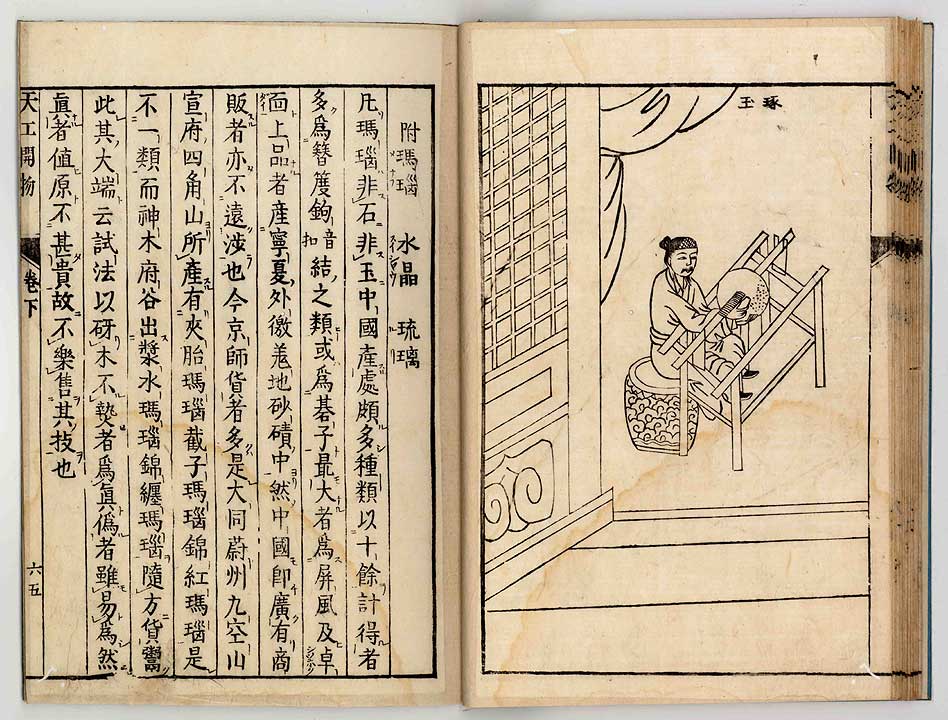 琢玉
附瑪瑙 水晶 琉璃
凡瑪瑙非石非玉中國產處頗多種類以十餘計得者
多爲簪鉤音扣結之類或爲碁子最大者爲屏風及卓
面上品者產寧夏外徼羗地砂磧中然中國卽廣有商
販者亦不遠涉也今京師貨者多是大同蔚州九空山
宣府四角山所產有夾胎瑪瑙截子瑪瑙錦紅瑪瑙是
不一類而神木府谷出漿水瑪瑙錦纏瑪瑙隨方貨鬻
此其大端云試法以砑木不熱者爲眞僞者雖易爲然
眞者値原不甚貴故不樂售其技也
天工開物 卷下 六五